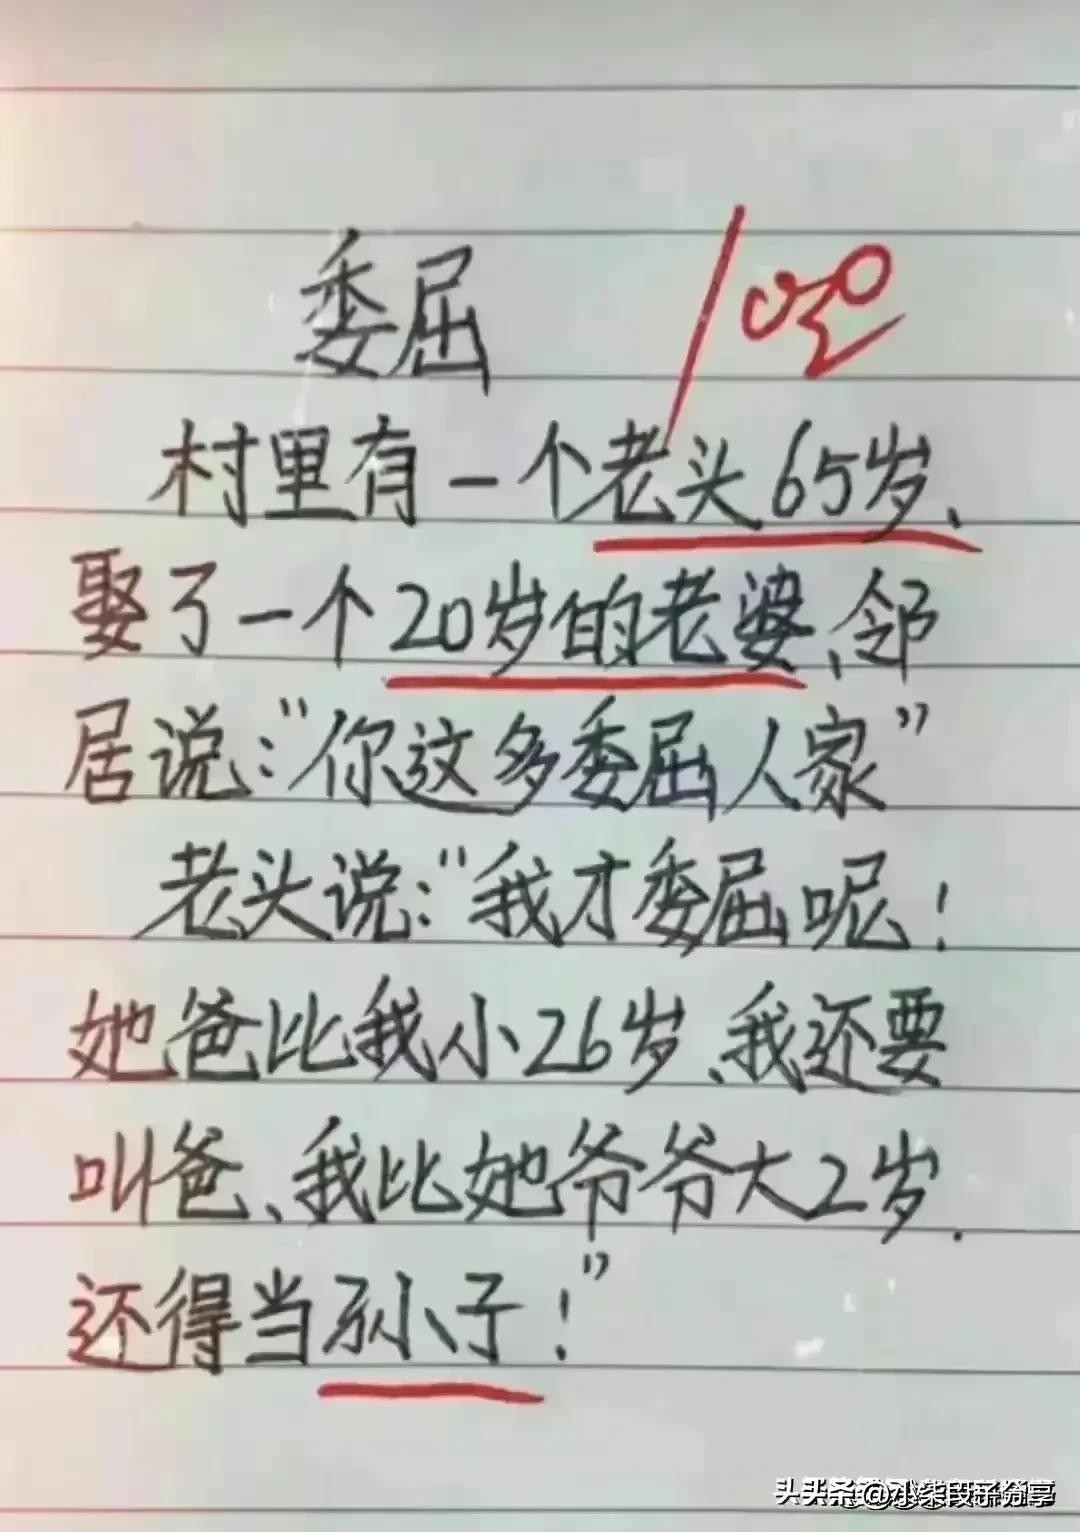 委屈 100
村里有一个老头65岁、
娶了一个20岁的老婆、邻
居说："你这多委屈人家"
老头说："我才委屈呢！
她爸比我小26岁、我还要
叫爸、我比她爷爷大2岁.
还得当孙子！"
头条@小柒段子分享